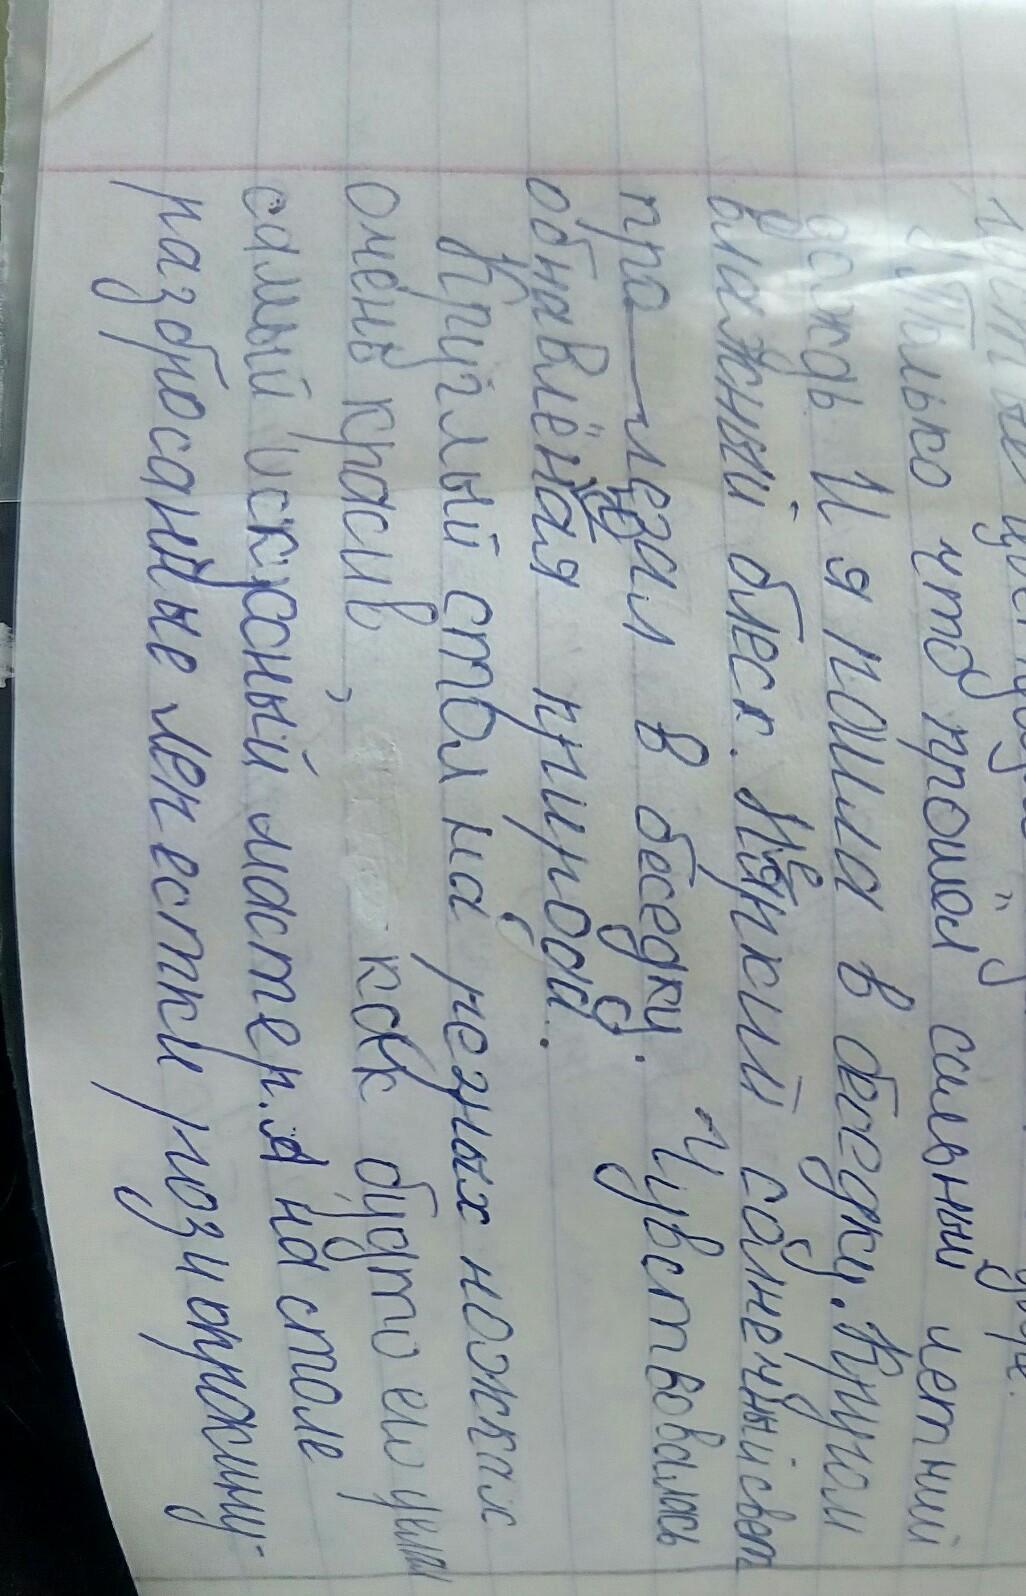 Только что прошёл сильный летний
дождь. И я пошла в беседку. Кругом
влажный блеск. Неяркий солнечный свет
про—лезал в беседку. Чувствовалась
обнавлёная природа.
Круглый стол на резных ножках
очень красив, как будто его делал
самый искусный мастер. А на столе
разбросанные лепестки роз и опрокину-